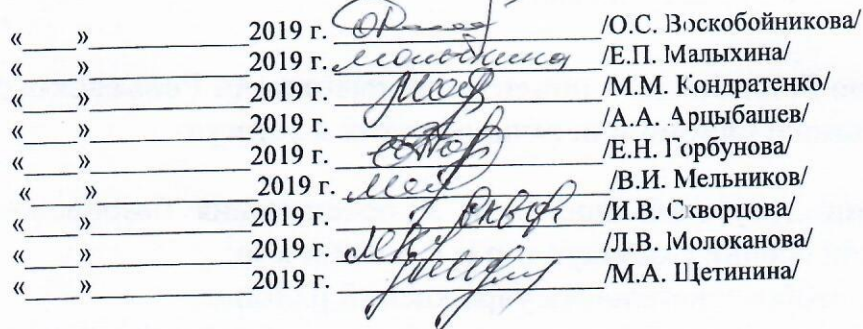 «____»____________2019 г. ____________/О.С. Воскобойникова/
«____»____________2019 г. Малыхина /Е.П. Малыхина/
«____»____________2019 г. ____________/М.М. Кондратенко/
«____»____________2019 г. ____________/А.А. Арцыбашев/
«____»____________2019 г. ____________/Е.Н. Горбунова/
«____»____________2019 г. ____________/В.И. Мельников/
«____»____________2019 г. ____________/И.В. Скворцова/
«____»____________2019 г. ____________/Л.В. Молоканова/
«____»____________2019 г. ____________/М.А. Щетинина/